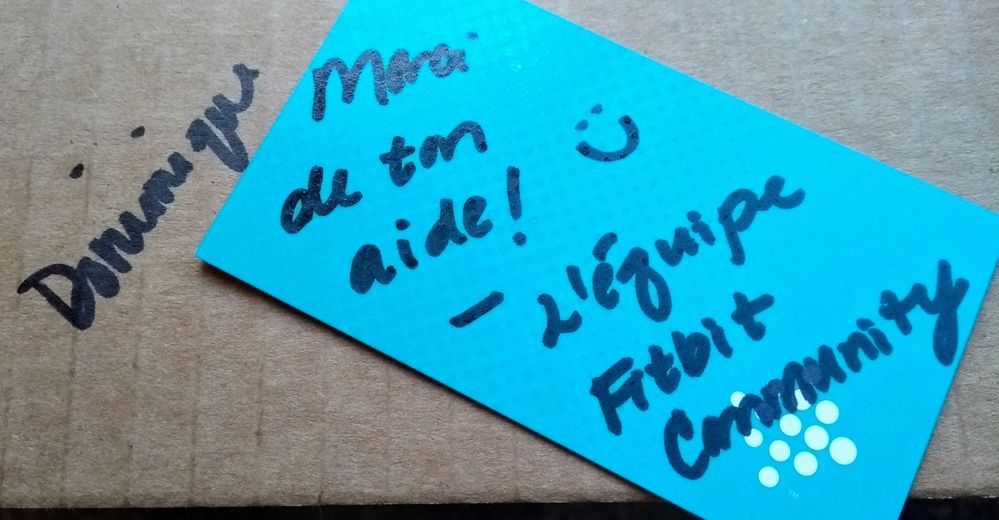 Dominique
Merci
de ton
aide!
- L'équipe
Fitbit
Community
TM